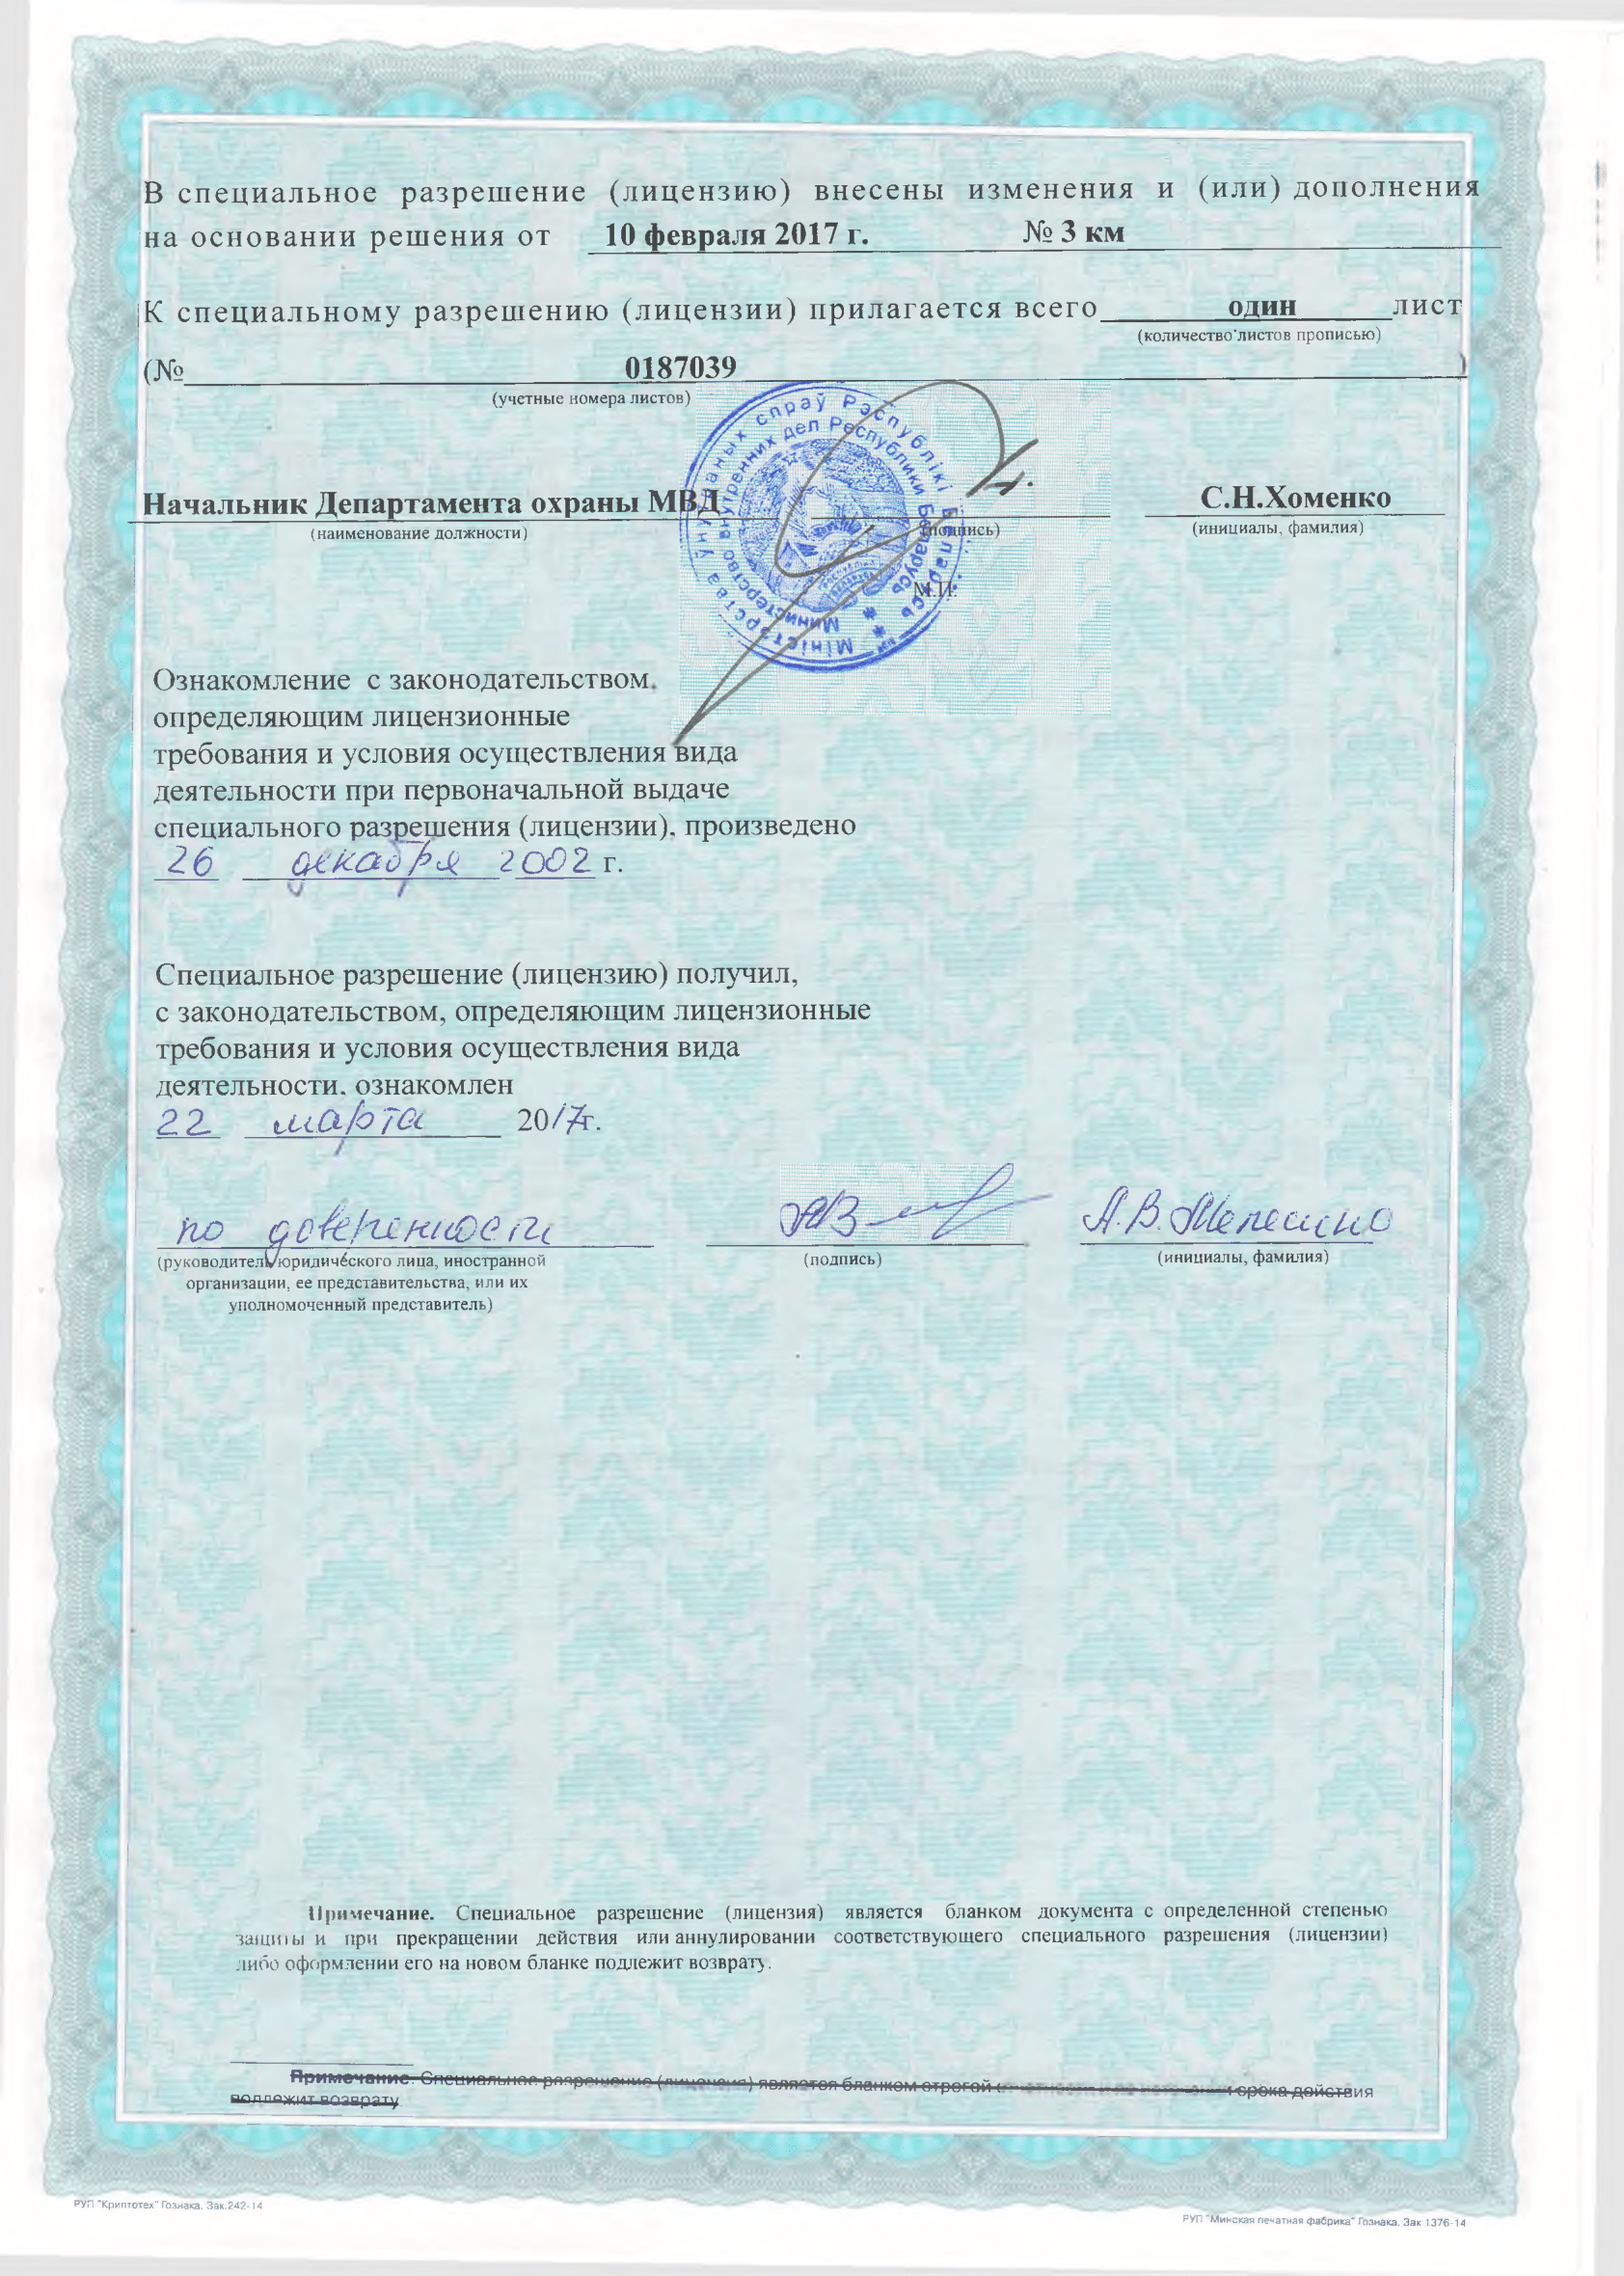 В специальное разрешение (лицензию) внесены изменения и (или) дополнения
на основании решения от 10 февраля 2017 г. № 3 км
К специальному разрешению (лицензии) прилагается всего один лист
(количество листов прописью)
(№ 0187039 )
(учетные номера листов)
Міністэрства ўнутраных спраў Рэспублікі Беларусь
Министерство внутренних дел Республики Беларусь
Начальник Департамента охраны МВД С.Н.Хоменко
(наименование должности) (подпись) (инициалы, фамилия)
М.П.
Ознакомление с законодательством,
определяющим лицензионные
требования и условия осуществления вида
деятельности при первоначальной выдаче
специального разрешения (лицензии), произведено
26 декабря 2002 г.
Специальное разрешение (лицензию) получил,
с законодательством, определяющим лицензионные
требования и условия осуществления вида
деятельности, ознакомлен
22 марта 2017г.
по доверенности А.В.
(руководитель юридического лица, иностранной (подпись) (инициалы, фамилия)
организации, ее представительства, или их
уполномоченный представитель)
Примечание. Специальное разрешение (лицензия) является бланком документа с определенной степенью
защиты и при прекращении действия или аннулировании соответствующего специального разрешения (лицензии)
либо оформлении его на новом бланке подлежит возврату.
Примечание. Специальное разрешение (лицензия) является бланком строгой срока действия
подлежит возврату
РУП "Криптотех" Гознака. Зак.242-14
РУП "Минская печатная фабрика" Гознака. Зак 1376-14